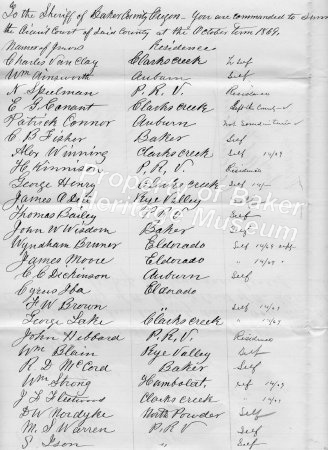 To the Sheriff of Baker County Oregon. You are commanded to Summ
the Circuit Court of said County at the October term 1869.
Names of Jurors Residences
Charles Van Clay Clarks creek To Self
Wm Ainsworth Auburn Self
N. Speelman P. R. V. Residence
E. G. Canant Clarks creek Left the County
Patrick Connor Auburn Not Found
C B Fisher Baker Self
Alex Winning Clarks creek Self 14/69
H. Kinnison P. R. V. Residence
George Henry creek Self
James Rye Valley
Thomas Bailey Self
John W Wisdom Baker Self
Wyndham Bruner Eldorado Self 14/69
James Moore Eldorado " 14/69 "
C C Dickinson Auburn Self
Cyrus Iba Eldorado
F. W. Brown Self 14/69
George Lake Clarks creek " 14/69
John Hibbard P. R. V. Residence
Wm Blain Rye Valley Self
R D McCord Baker Self
Wm Strong Humbolat, Self 14/69
J. F. Clarks creek " 14/69
D W Nordyke North Powder Self
M. S Warren P. R V Self
S Ison " Self
Property of Baker
Heritage Museum